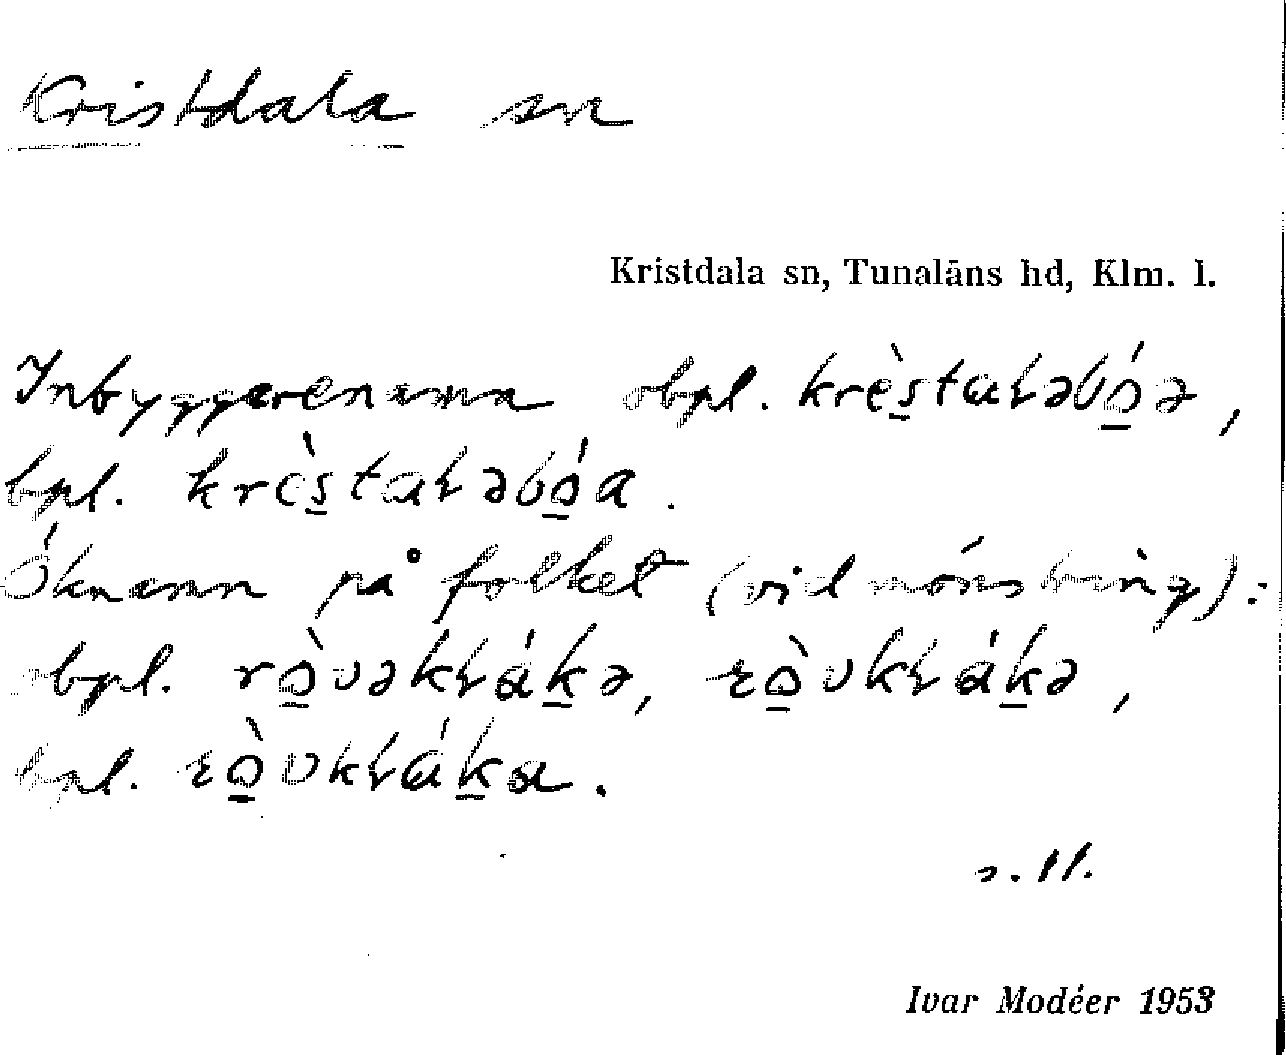 Kristdala sn
Kristdala sn, Tunaläns hd, Klm. l.
Inbyggarenamn obpl. krès̱taɫəbó̱ə,
bpl. krès̱taɫəbó̱a.
Öknamn på folket (vid mönstring):
obpl. rò̱vəkɫáḵə, rò̱vkɫáḵə,
bpl. rò̱vkɫáḵa.
s. 11.
Ivar Modéer 1953